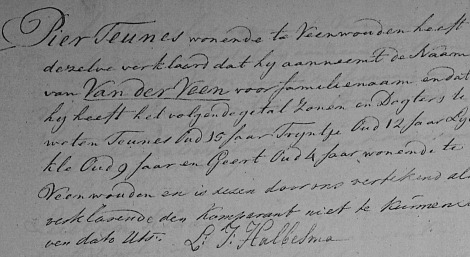 Pier Teunes wonende te Veenwouden heeft
dezelve verklaard dat hij aanneemt de Naam
van Van der Veen voor familienaam en dat
hij heeft het volgende getal Zonen en Dogters te
weten Teunes Oud 15 Jaar Tryntje Oud 12 Jaar
kle Oud 9 Jaar en Geert Oud 4 Jaar wonende te
Veenwouden en is dezen door ons getekend als
verklarende den komparant niet te kunnen
van dato Uts. L: J: Halbesma